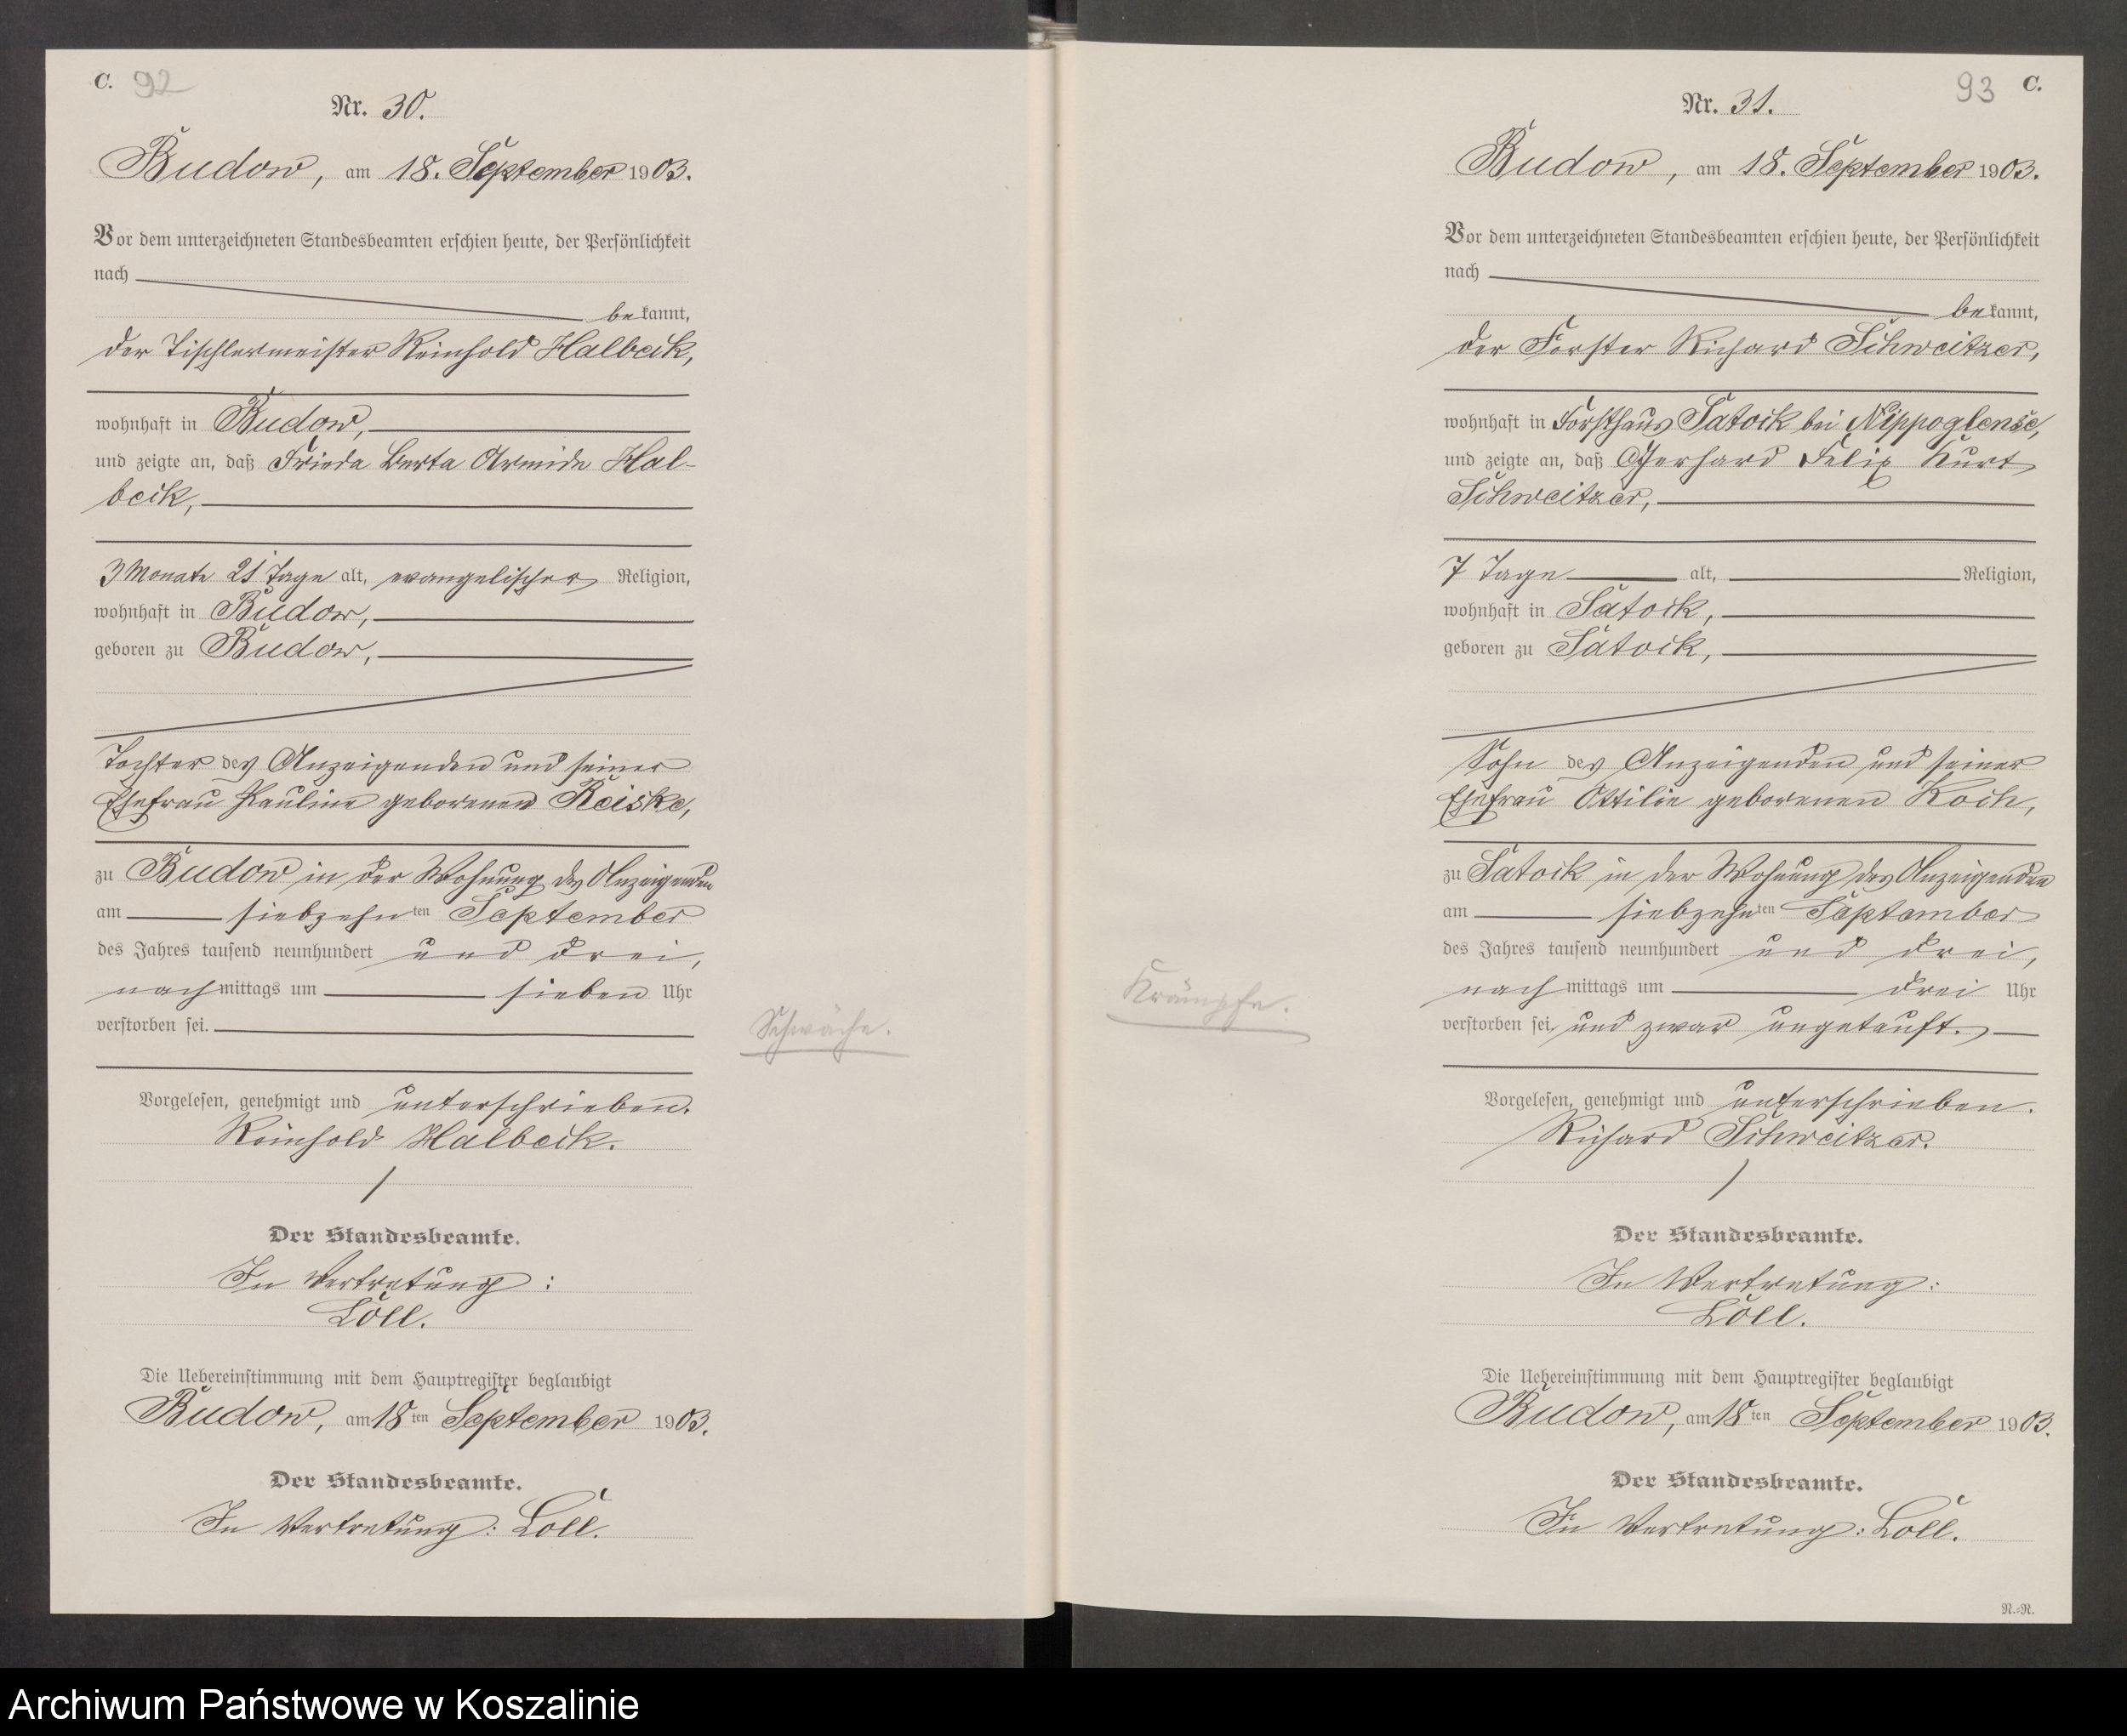 C. 92
Nr. 30.
Budow, am 18. September 1903.
Vor dem unterzeichneten Standesbeamten erschien heute, der Persönlichkeit
nach
bekannt,
der Tischlermeister Reinhold Halbeck,
wohnhaft in Budow,
und zeigte an, daß Frieda Berta Armide Hal-
beck,
3 Monate 21 Tage alt, evangelischer Religion,
wohnhaft in Budow,
geboren zu Budow,
Tochter des Anzeigenden und seiner
Ehefrau Pauline geborenen Reiske,
zu Budow in der Wohnung des Anzeigenden
am siebzehnten September
des Jahres tausend neunhundert und drei,
nachmittags um sieben Uhr
verstorben sei.
Schwäche.
Vorgelesen, genehmigt und unterschrieben.
Reinhold Halbeck.
Der Standesbeamte.
In Vertretung:
Löll.
Die Uebereinstimmung mit dem Hauptregister beglaubigt
Budow, am 18ten September 1903.
Der Standesbeamte.
In Vertretung: Löll.
93 C.
Nr. 31.
Budow, am 18. September 1903.
Vor dem unterzeichneten Standesbeamten erschien heute, der Persönlichkeit
nach
bekannt,
der Förster Richard Schweitzer,
wohnhaft in Forsthaus Satock bei Nippoglense,
und zeigte an, daß Gerhard Felix Kurt
Schweitzer,
7 Tage alt, Religion,
wohnhaft in Satock,
geboren zu Satock,
Sohn des Anzeigenden und seiner
Ehefrau Ottilie geborenen Koch,
zu Satock in der Wohnung des Anzeigenden
am siebzehnten September
des Jahres tausend neunhundert und drei,
nachmittags um drei Uhr
verstorben sei, und zwar ungetauft.
Krämpfe.
Vorgelesen, genehmigt und unterschrieben.
Richard Schweitzer.
Der Standesbeamte.
In Vertretung:
Löll.
Die Uebereinstimmung mit dem Hauptregister beglaubigt
Budow, am 18ten September 1903.
Der Standesbeamte.
In Vertretung: Löll.
N.=N.
Archiwum Państwowe w Koszalinie